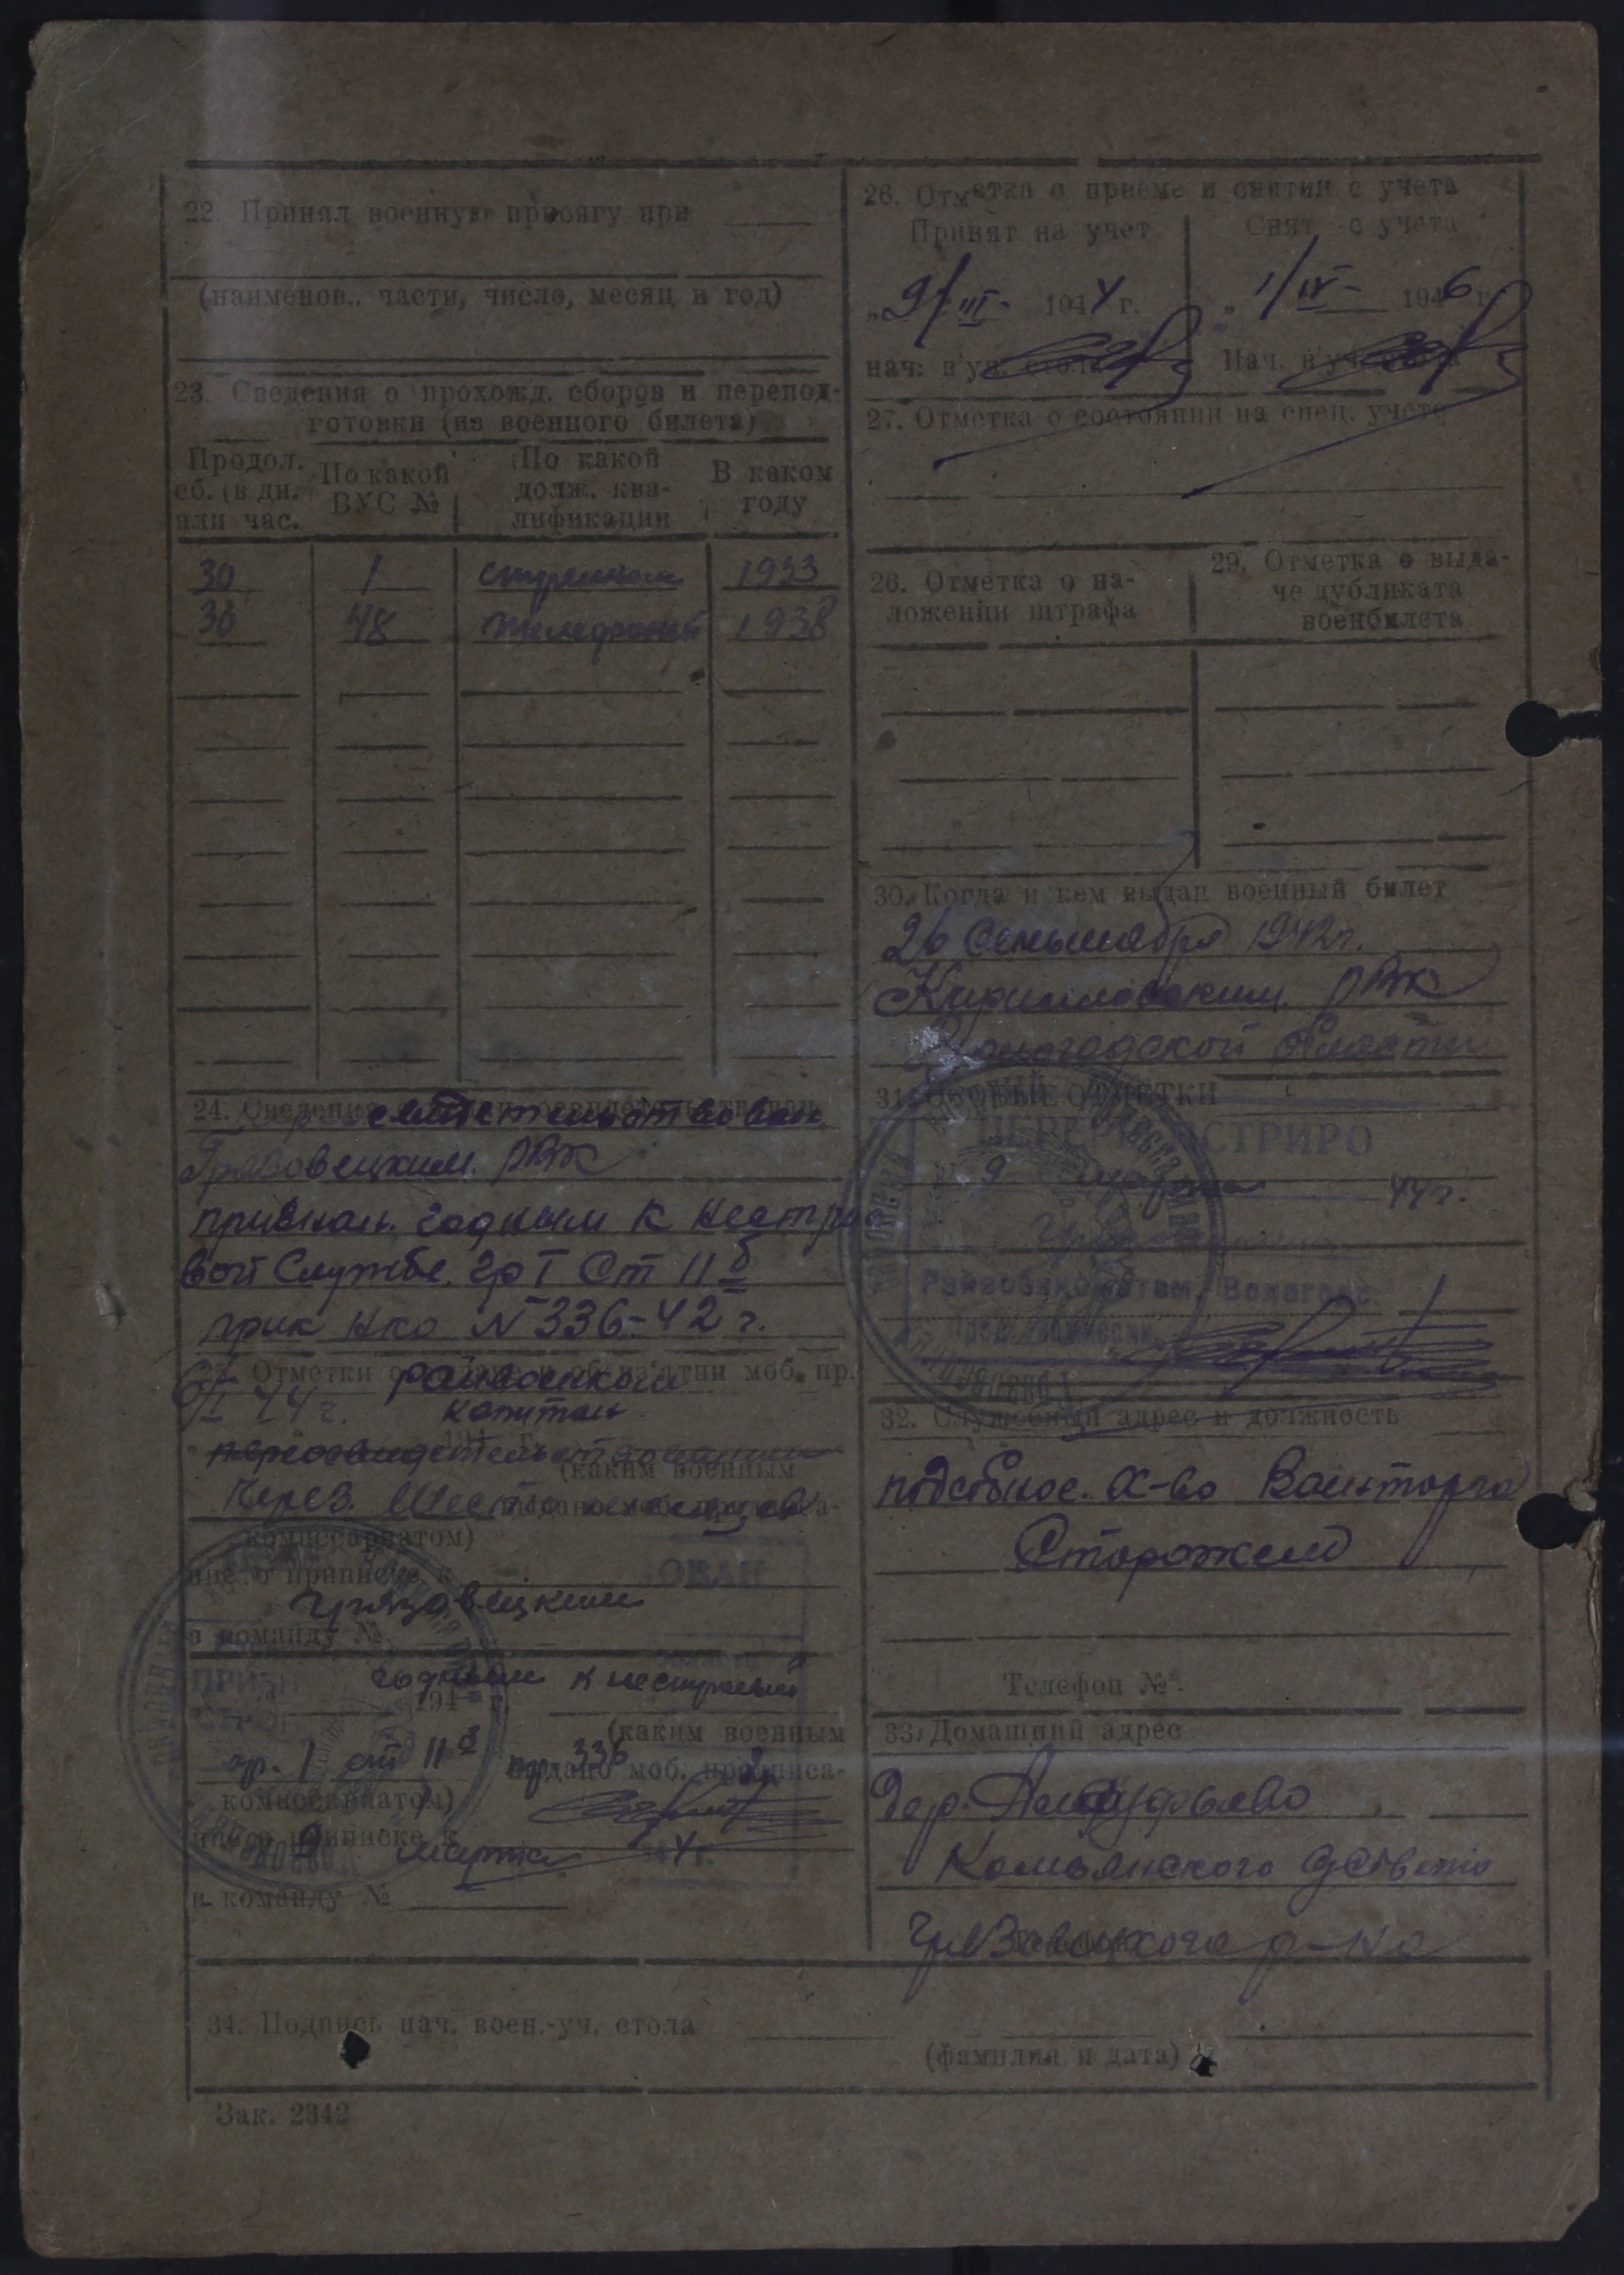 22. Принял военную присягу при
(наименов.. части, число, месяц и год)
23. Сведения о прохожд. сборов и перепод-
готовки (из военного билета)
Продол. сб. (в дн. или час.
По какой ВУС №
По какой долж. ква-лификации
В каком году
30 1 стрелком 1933
30 48 1938
24. Сведения
Грязовецким РВК
признан. годным к нестро
вой службе. гр I Ст 11б
прик НКО № 336-42 г.
25. Отметки моб. пр.
44 г.
капитан
(каким военным
через. шесть месяцев
комиссариатом)
ние о приписке к
ОВАН
Грязовецким
в команду №
годным к нестроевой
194 г.
(каким военным
гр. 1 ст 11б пр 336
выдано моб. предписа-
комиссариатом)
ние о приписке к
9 марта 4 г.
в команду №
26. Отметка о приеме и снятии с учета
Принят на учет
Снят с учета
„9/III- 1944 г.
„1/IV- 1946 г.
нач: в'уч. стола
Нач. в'уч. стола
27. Отметка о состоянии на спец. учете
26. Отметка о на-
ложении штрафа
29. Отметка о выда-
че дубликата
военбилета
30. Когда и кем выдан военный билет
26 Сентября 1942 г.
Кирилловским РВК
Вологодской области
31. ОСОБЫЕ ОТМЕТКИ
ПЕРЕРЕГИСТРИРО
9 марта 44 г.
Райвоенкоматом, Вологодс
Пред. комиссии
32. Служебный адрес и должность
подсобное. х-во Военторга
Сторожем
Телефон №
33. Домашний адрес
дер.
Комьянского с/совета
Грязовецкого р-на
34. Подпись нач. воен.-уч. стола
(фамилия и дата)
Зак. 2342